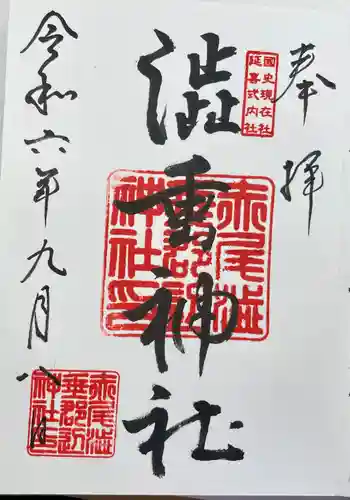 奉拝
國史現在社
延喜式内社
澁垂神社
赤尾澁
垂郡辺
神社印
令和六年九月八日
赤尾澁
垂郡辺
神社